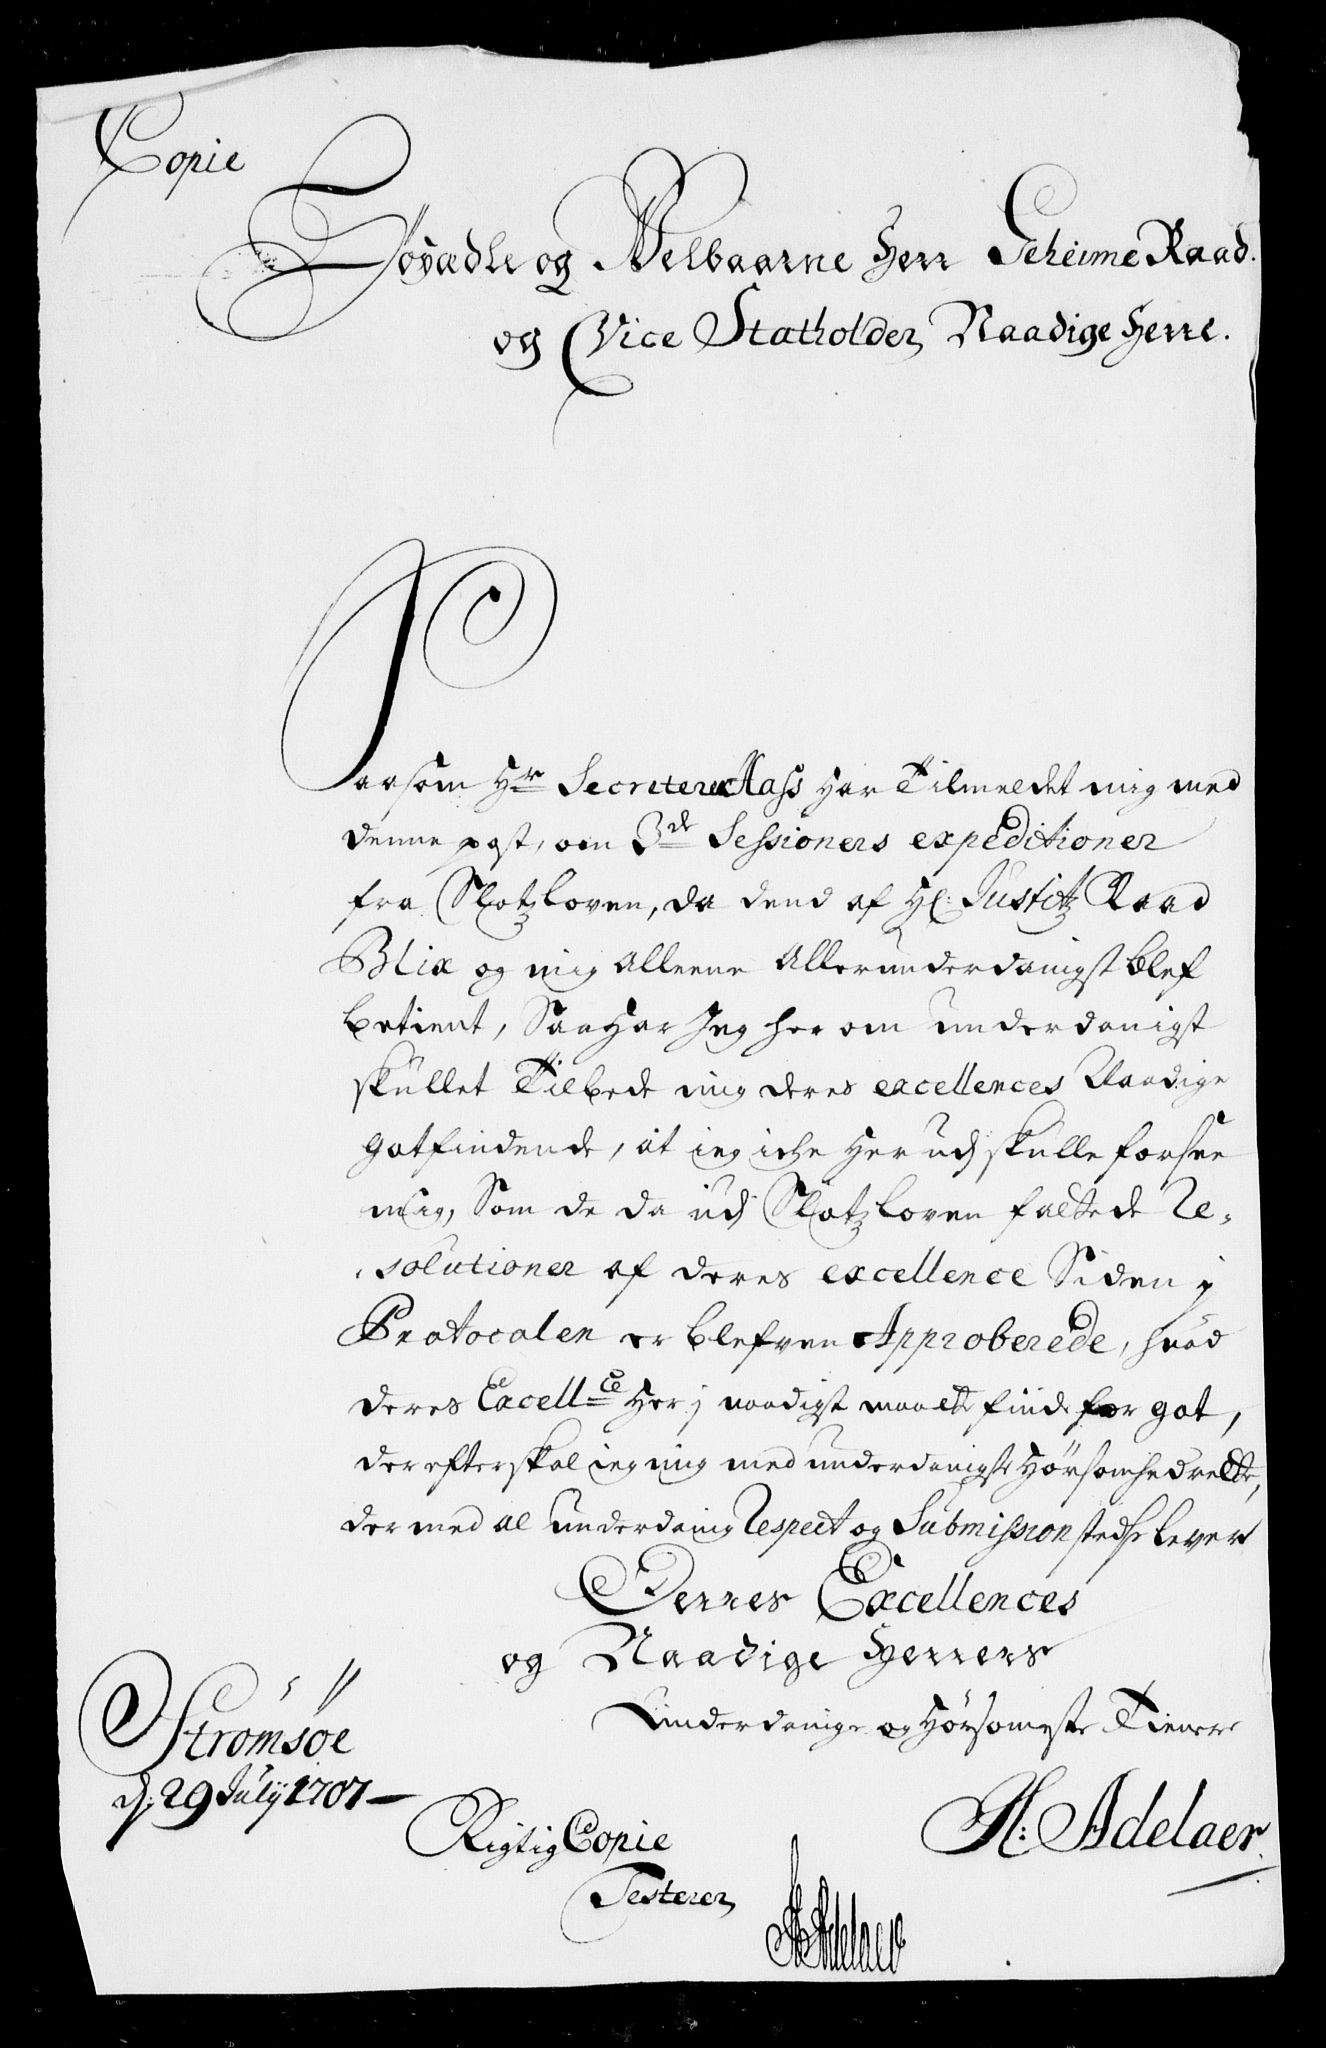 Copie
Høyædle og Welbaarne Herr Geheime Raad.
og Vice Statholder, Naadige Herre.
Saasom Hr Secretere Hass har Tilmeldet mig med
denne post, om 3de Sessioners expeditioner
fra Slotzloven, da dend af Hr: Justitz Raad
Blix og mig alleene allerunderdanigst blef
betient, Saa har Jeg her om underdanigst
skullet Tilbede mig deres excellences Naadige
gotfindende, at ieg iche her udj skulle forsee
mig, Som de da udj Slotzloven faldte de Re-
solutioner af deres excellence Siden j
Protocolen er blefven Approberede, hvad
deres Excellce her j naadigst maatte finde for got,
derefter skal ieg mig med underdanigste hørsomhed rette,
der med al underdanig Respect og Submission stedse lever
Derres Excellences
og Naadige Herrers
Underdanige og hørsomste Tienere
Strømsøe
d: 29 July 1707
H: Adelaer
Rigtig Copie
Testerer
H Adelaer